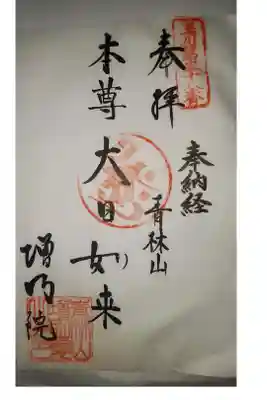 奉拝
奉納経
青林山
本尊 大日如来
増明院